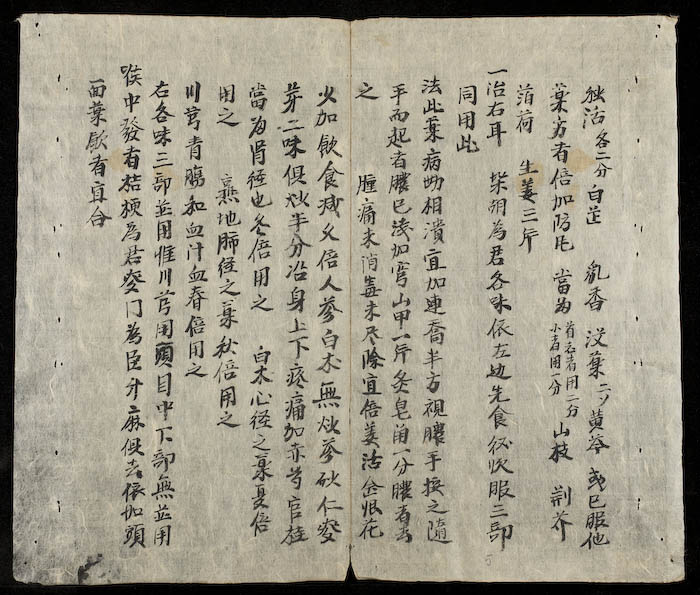 独活各二分 白芷 乳香 没薬二ソ黄芩 或巳服他
薬方者倍加防凡 當为首老者用二分小者用一分 山枝 荆芥
泊荷 生姜三斤
一治右耳 柴胡為君各味依左边先食後次服三部
同用此
法此薬病幼相潰宜加連喬半方視膿手按之隨
手而起者膿已法加穿山甲一斤炙皂角一分膿者去
之 腫痛未消毒未尽除宜倍羌活金恨花
火加飲食减久倍人參白术無炒參砂仁麥
芽二味俱炒半分治身上下疼痛加赤芍官桂
當为肾径也冬倍用之 白术心径之薬夏倍
用之 熹地肺径之薬秋倍用之
川芎青膓和血汁血春倍用之
右各味三部並用惟川芎用頭目中下部無並用
喉中發者桔梗為君麥门為臣升麻俱去依加頭
面薬㰸者宜合